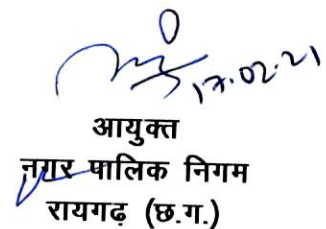 17.02.21
आयुक्त
नगर पालिक निगम
रायगढ़ (छ.ग.)